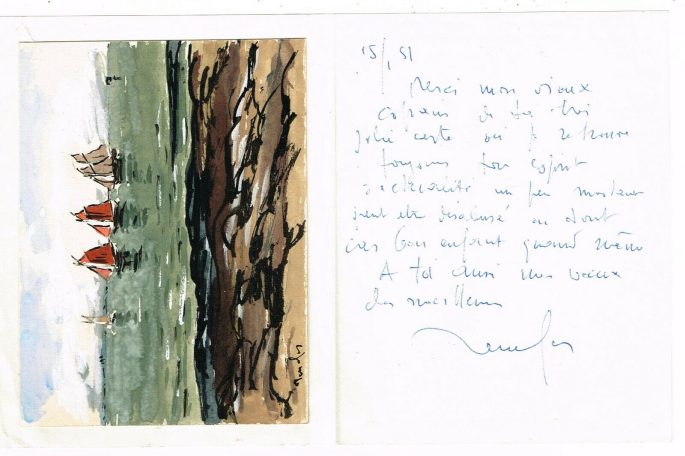 15/1 51
Merci mon vieux
copain de ta très
jolie carte où je retrouve
toujours ton esprit
d'actualité un peu moqueur
peut être désabusé
très bon enfant quand même
A toi aussi mes vœux
les meilleurs